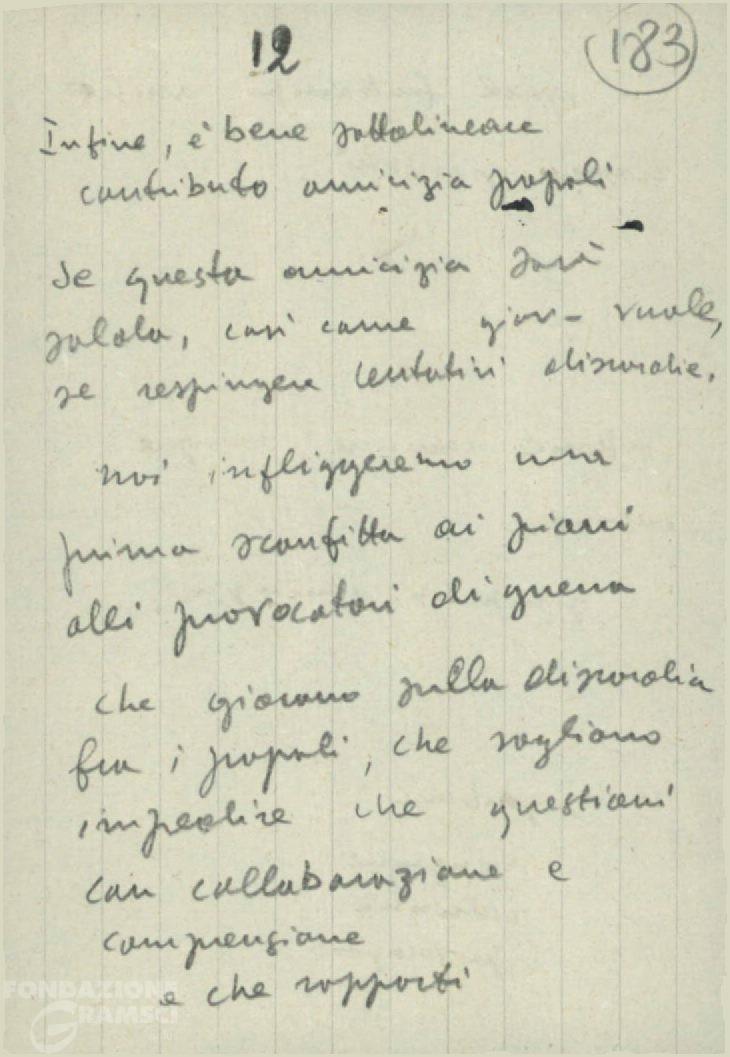 12
183
Infine, è bene sottolineare
contributo amicizia popoli
Se questa amicizia sarà
salda, così come giov- vuole,
se respingere tentativi discordie.
noi infliggeremo una
prima sconfitta ai piani
alli provocatori di guerra
che giocano sulla discordia
fra i popoli, che vogliono
impedire che questioni
con collaborazione e
comprensione
e che rapporti
FONDAZIONE
GRAMSCI